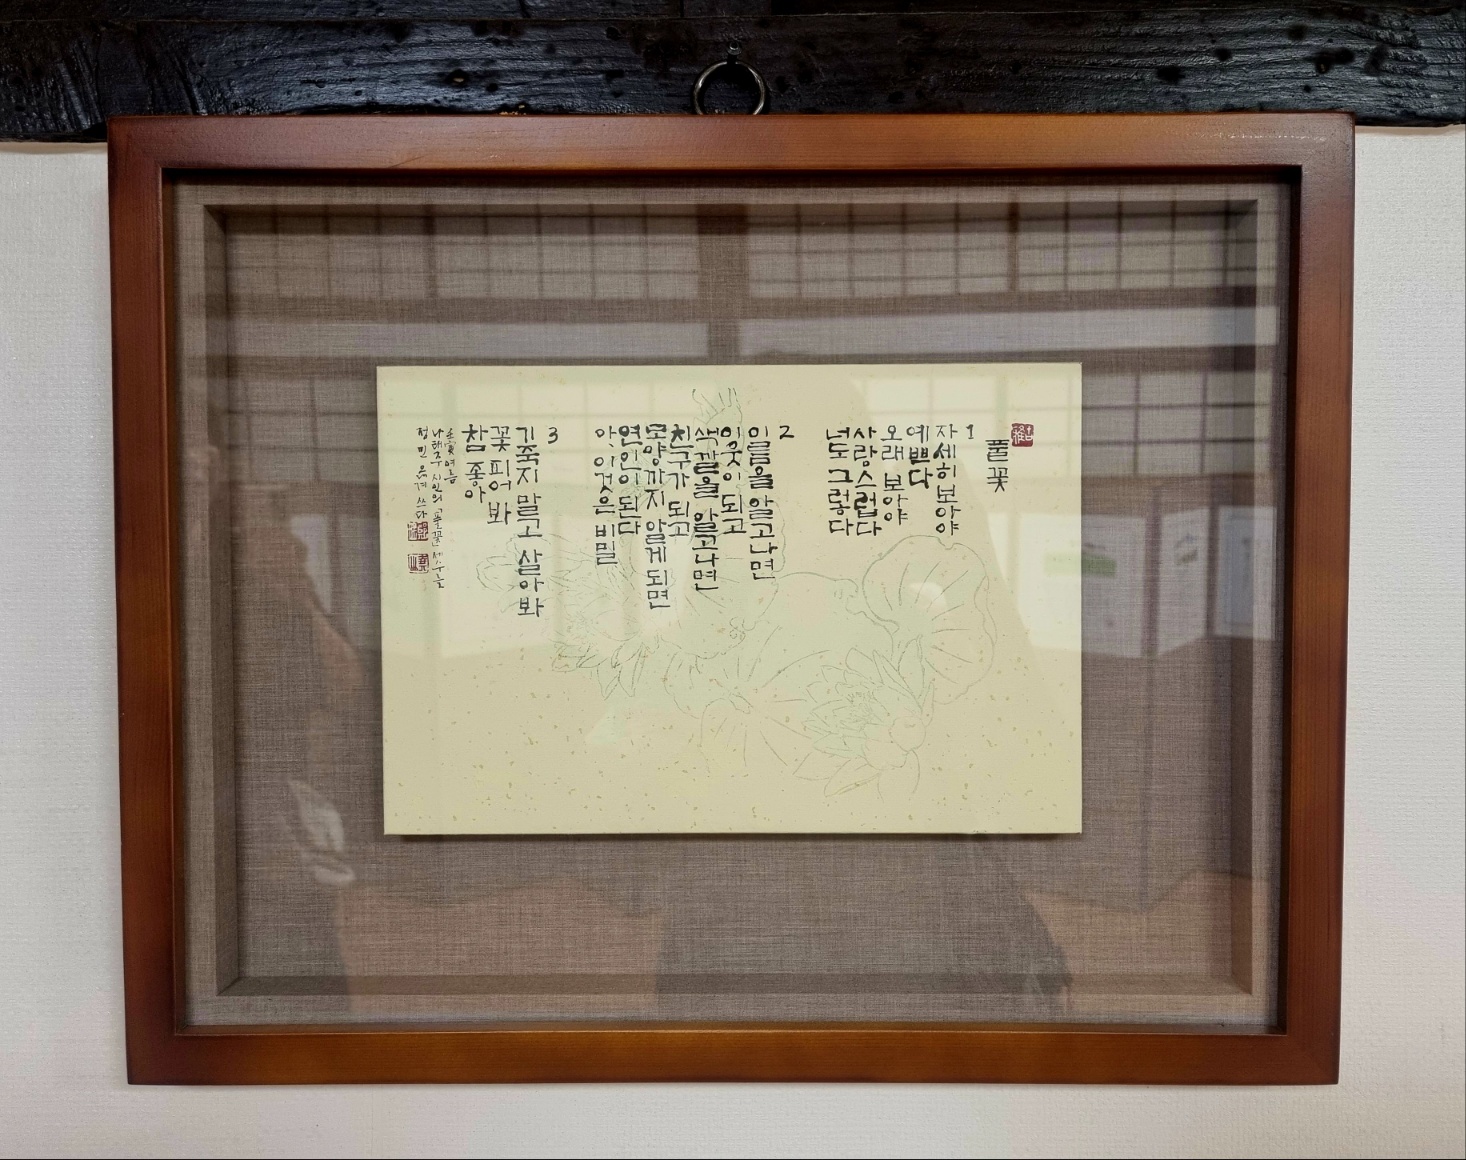 풀꽃
1
자세히 보아야
예쁘다
오래 보아야
사랑스럽다
너도 그렇다
2
이름을 알고나면
이웃이 되고
색깔을 알고나면
친구가 되고
모양까지 알게 되면
연인이 된다
아, 이것은 비밀
3
기죽지 말고 살아봐
꽃 피어 봐
참 좋아
여름
나태주 시인의 「풀꽃」 세 수를
정민 옮겨 쓰다